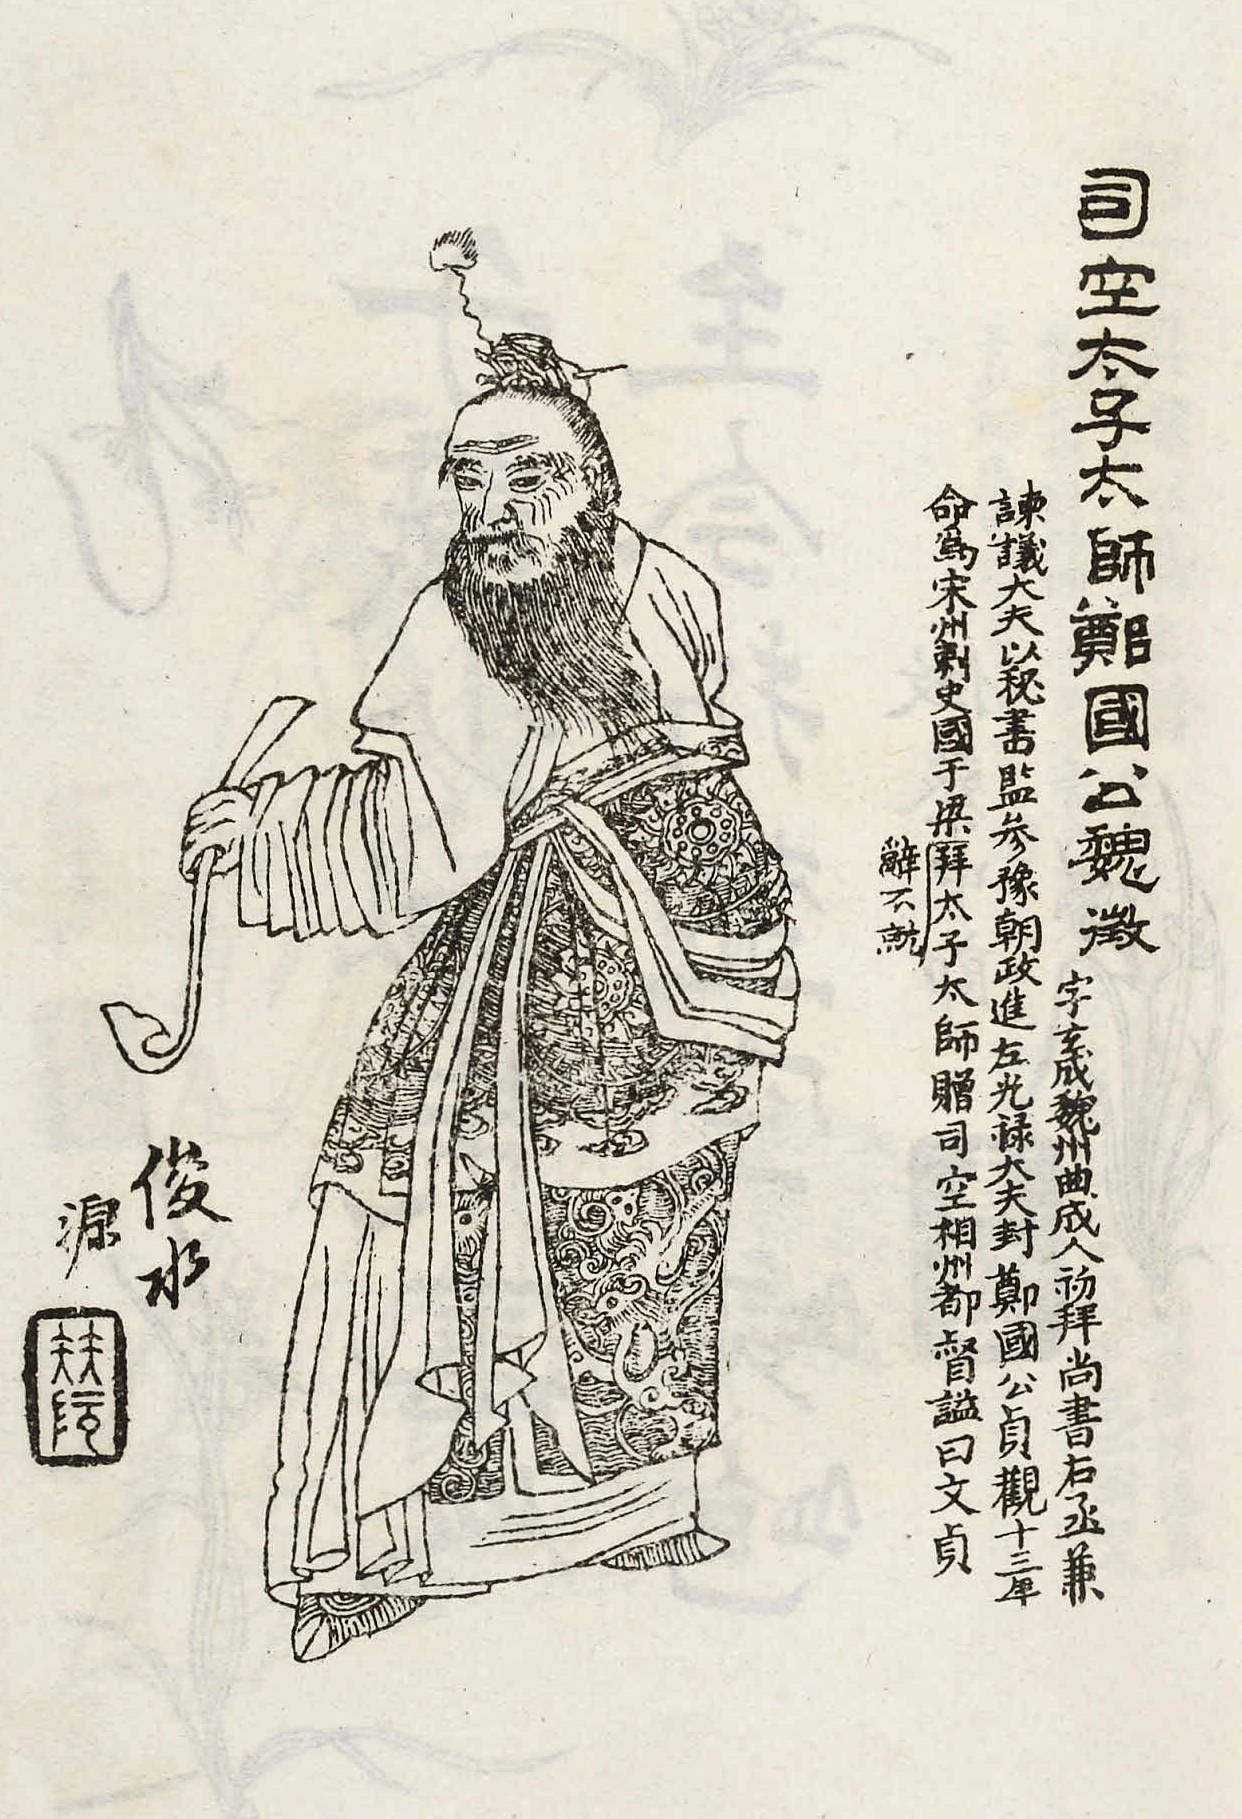 司空太子太師鄭國公魏徵
字玄成魏州曲成人初拜尚書右丞兼
諫議大夫以秘書監參豫朝政進左光祿大夫封鄭國公貞觀十三年
命爲宋州刺史國于梁拜太子太師贈司空相州都督謚曰文貞
辭不就
俊水
源